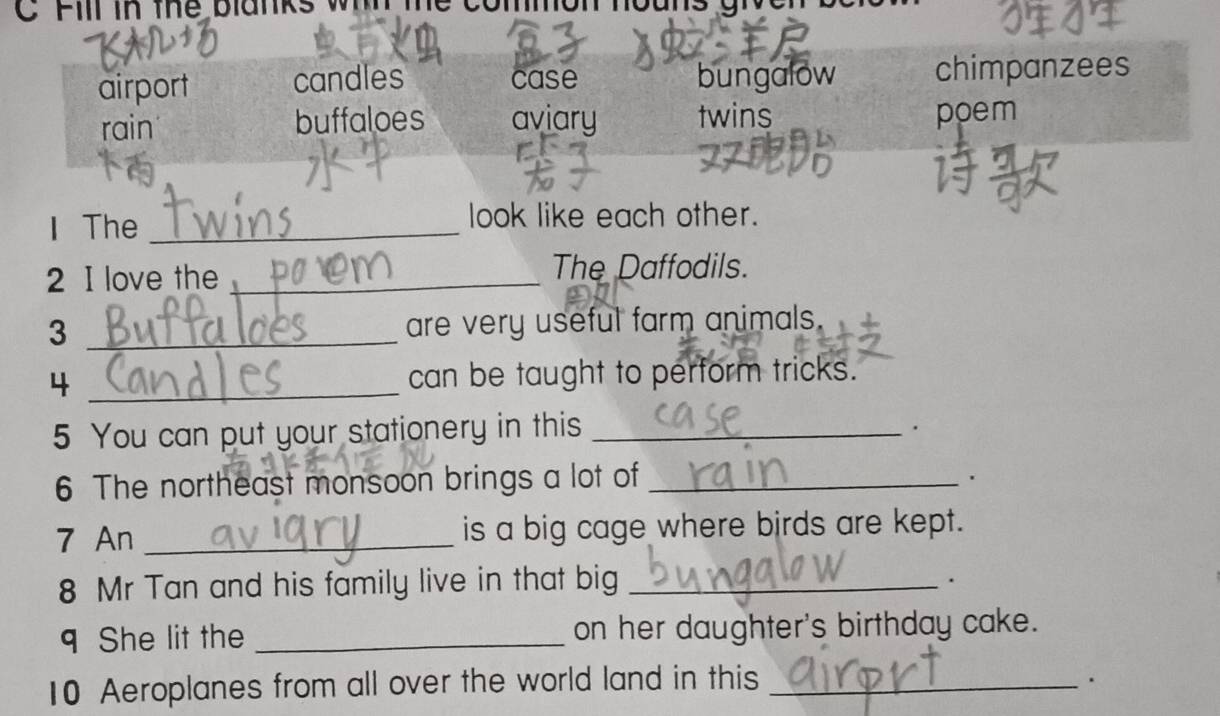 C Fill in the blanks with the common nouns given below.
飞机场 盒子 独 洋房 猩猩
airport candles case bungalow chimpanzees
rain buffaloes aviary twins poem
下雨 水牛 袋子 双胞胎 诗歌
1 The twins look like each other.
2 I love the poem The Daffodils.
用处
3 Buffaloes are very useful farm animals.
表演 特技
4 Candles can be taught to perform tricks.
5 You can put your stationery in this case .
季候风
6 The northeast monsoon brings a lot of rain .
7 An aviary is a big cage where birds are kept.
8 Mr Tan and his family live in that big bungalow .
9 She lit the ____ on her daughter's birthday cake.
10 Aeroplanes from all over the world land in this airprt .